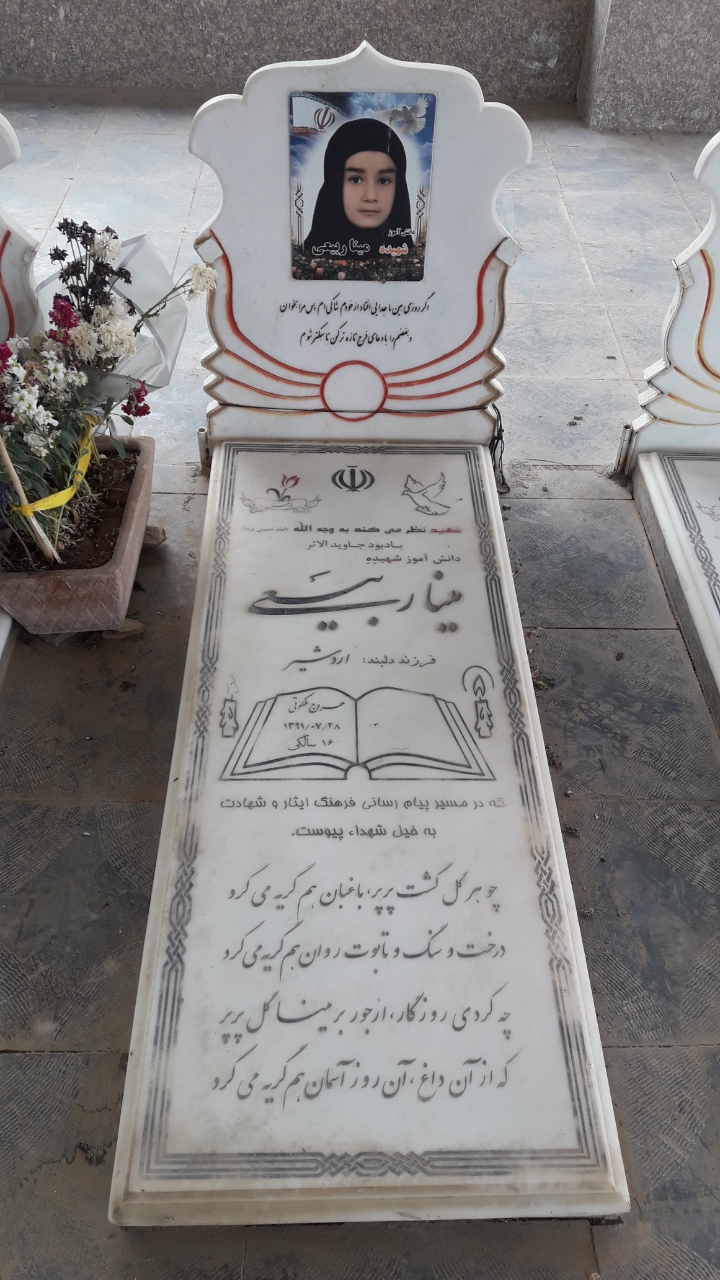 دانش آموز
شهیده مینا ربیعی
اگر روزی بین ما جدایی افتاد از خودم شاکی ام پس مرا بخوان
و بغضم را با دعای فرج تازه تر کن تا سبکتر شوم
شهید نظر می کند به وجه الله
یادبود جاوید الاثر
دانش آموز شهیده
مینا ربیعی
فرزند دلبند: اردشیر
عروج ملکوتی
۱۳۹۱/۰۷/۲۸
۱۶ سالگی
که در مسیر پیام رسانی فرهنگ ایثار و شهادت
به خیل شهداء پیوست.
چو هر گل گشت پرپر، باغبان هم گریه می کرد
درخت و سنگ و تابوت روان هم گریه می کرد
چه کردی روزگار، از جور بر مینا گل پرپر
که از آن داغ، آن روز آسمان هم گریه می کرد